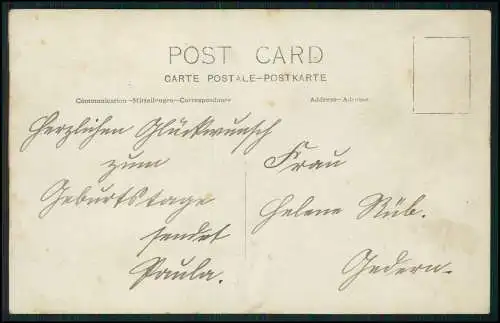 POST CARD
CARTE POSTALE–POSTKARTE
Communication–Mitteilungen–Correspondance
Address–Adresse
Herzlichen Glückwunsch
zum
Geburtstage
sendet
Paula.
Frau
Helene Rüb.
Gedern.